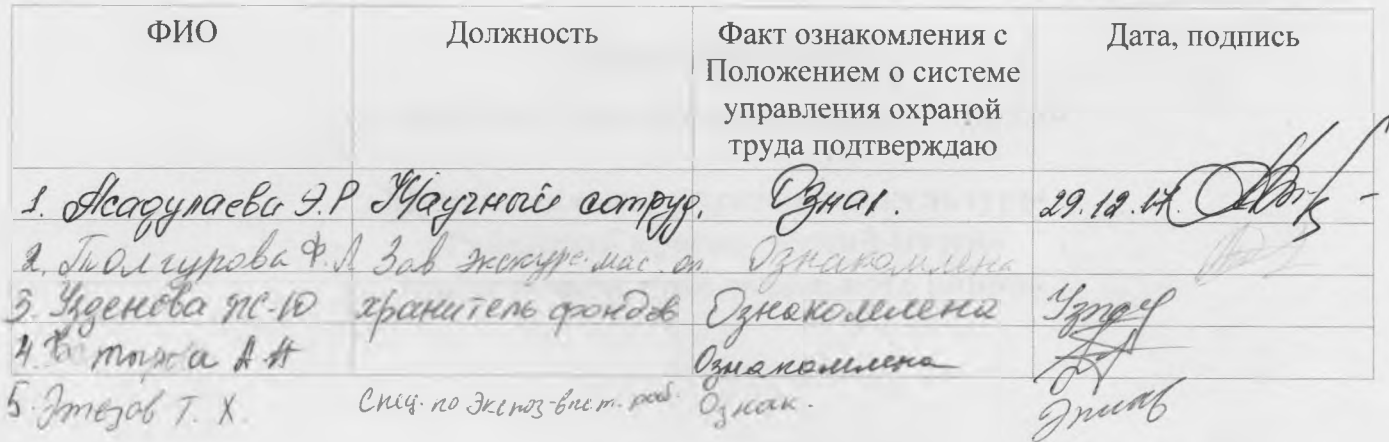 ФИО Должность Факт ознакомления с Дата, подпись
Положением о системе
управления охраной
труда подтверждаю
1. Асадулаева Э.Р Научный сотруд. Ознак. 29.12.17.
2. Толгурова Ф.А Зав экскурс. мас. от. Ознакомлена
3. Узденова М-Ю хранитель фондов Ознакомлена
4. А А Ознакомлена
5. Этезов Т. Х. Спец. по Экспоз-выст. раб. Ознак.